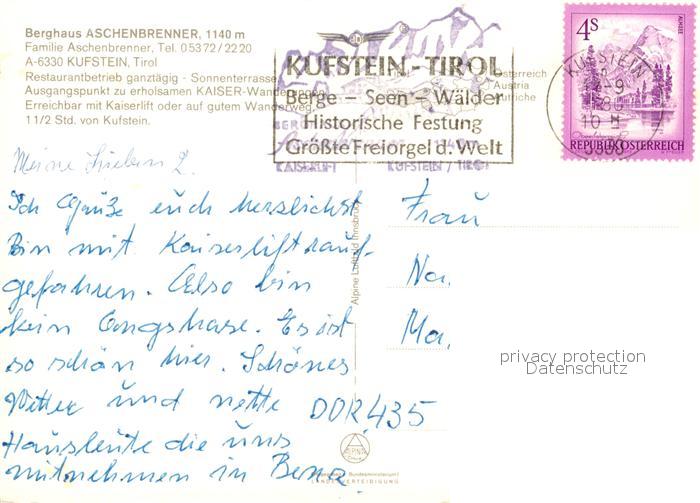 Berghaus ASCHENBRENNER, 1140 m
Familie Aschenbrenner, Tel. 05372/2220
A-6330 KUFSTEIN, Tirol
Restaurantbetrieb ganztägig - Sonnenterrasse
Ausgangspunkt zu erholsamen KAISER-Wanderungen
Erreichbar mit Kaiserlift oder auf gutem Wanderweg,
11/2 Std. von Kufstein.
KUFSTEIN-TIROL
Berge - Seen - Wälder
Historische Festung
Größte Freiorgel d. Welt
KAISERLIFT KUFSTEIN / TIROL
Österreich
Austria
4S
ALMSEE
REPUBLIK ÖSTERREICH
KUFSTEIN
Meine Lieben 2.
Ich Grüße euch herzlichst
Bin mit Kaiserlift rauf-
gefahren. Also bin
kein Angsthase. Es ist
so schön hier. Schönes
Wetter und nette
Hausleute die uns
mitnehmen in Berge.
Alpine Luftbild Innsbruck
Frau
Na.
Ma.
privacy protection
Datenschutz
DOR435
ALPINE
LANDESVERTEIDIGUNG